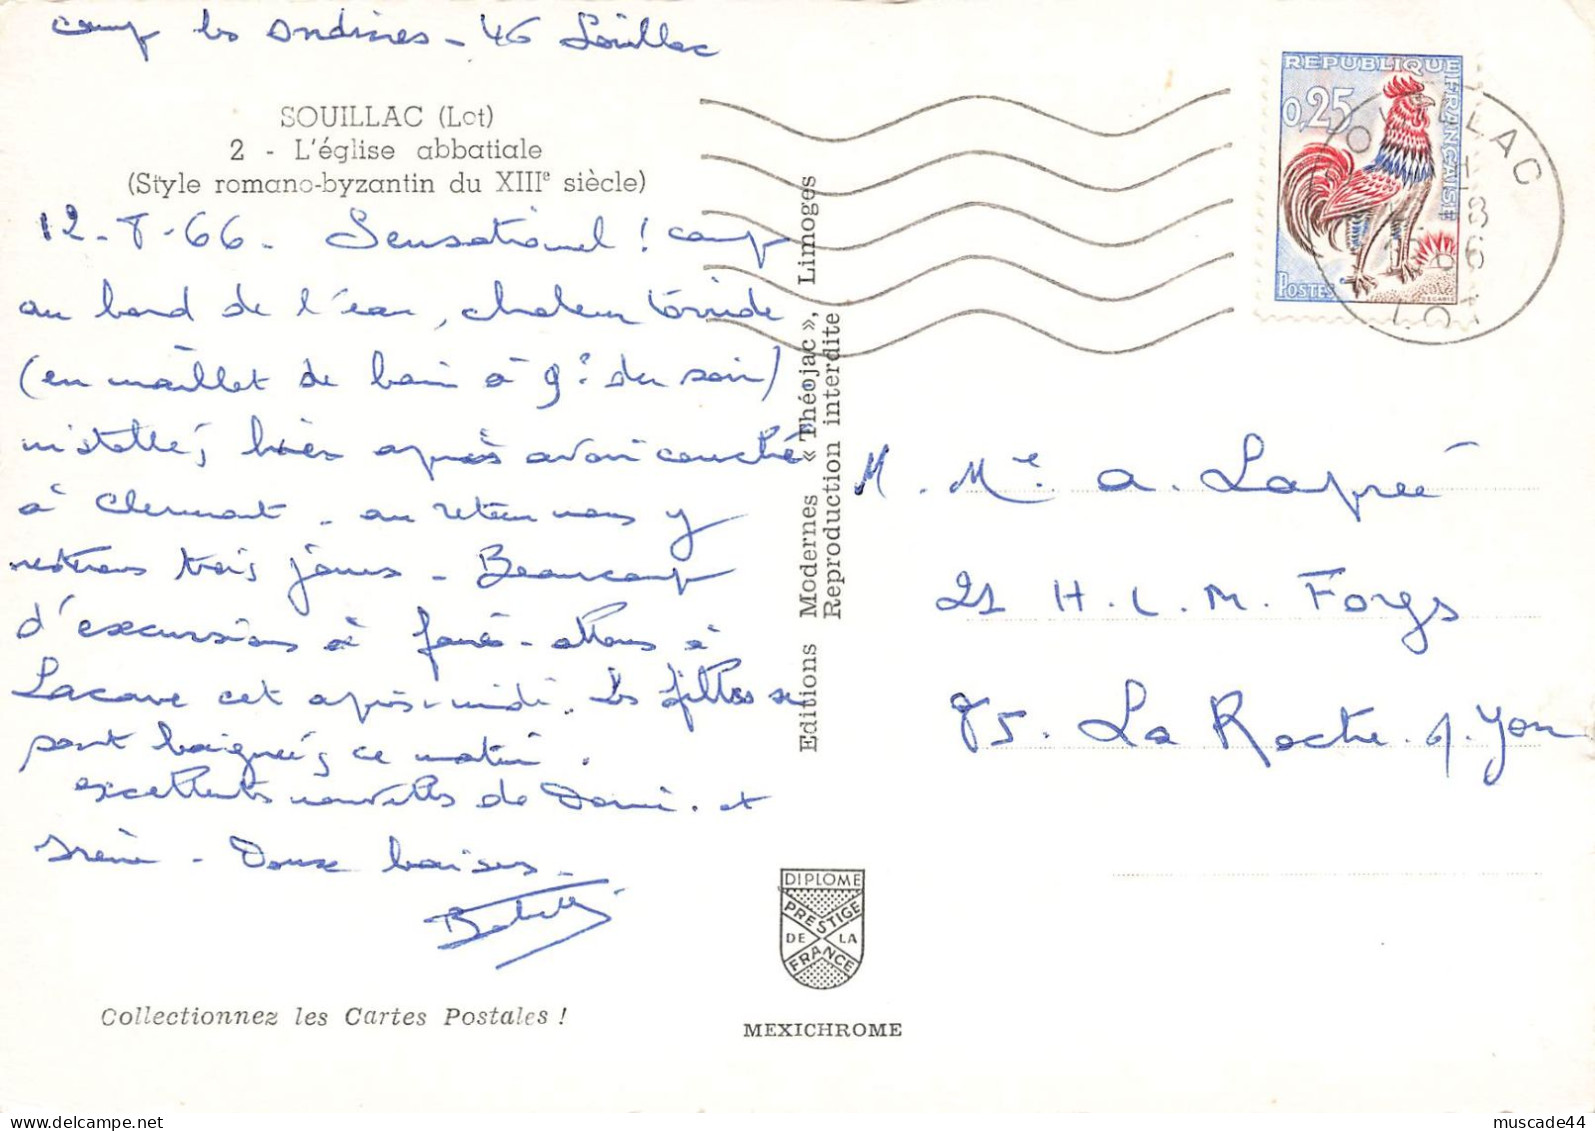 camp les Ondines - 46 Souillac
SOUILLAC (Lot)
2 - L'église abbatiale
(Style romano-byzantin du XIIIe siècle)
12-8-66- Sensationnel ! camp
au bord de l'eau, chaleur torride
(en maillot de bain à 9h du soir)
installés hier après avoir couché
à Clermont - au retour nous y
resterons trois jours - Beaucoup
d'excursions à faire - allons à
Lacave cet après-midi. Les filles se
sont baignées ce matin.
excellentes nouvelles de et
Irène - Doux baisers -
Collectionnez les Cartes Postales !
Editions Modernes « Théojac », Limoges
Reproduction interdite
DIPLOME
PRESTIGE
DE LA
FRANCE
MEXICHROME
REPUBLIQUE FRANÇAISE
0,25
POSTES
DECARIS
SOUILLAC
LOT
M. Me. A. Lapreé
21 H.L.M. Forgs
85. La Roche. s. Yon
muscade44